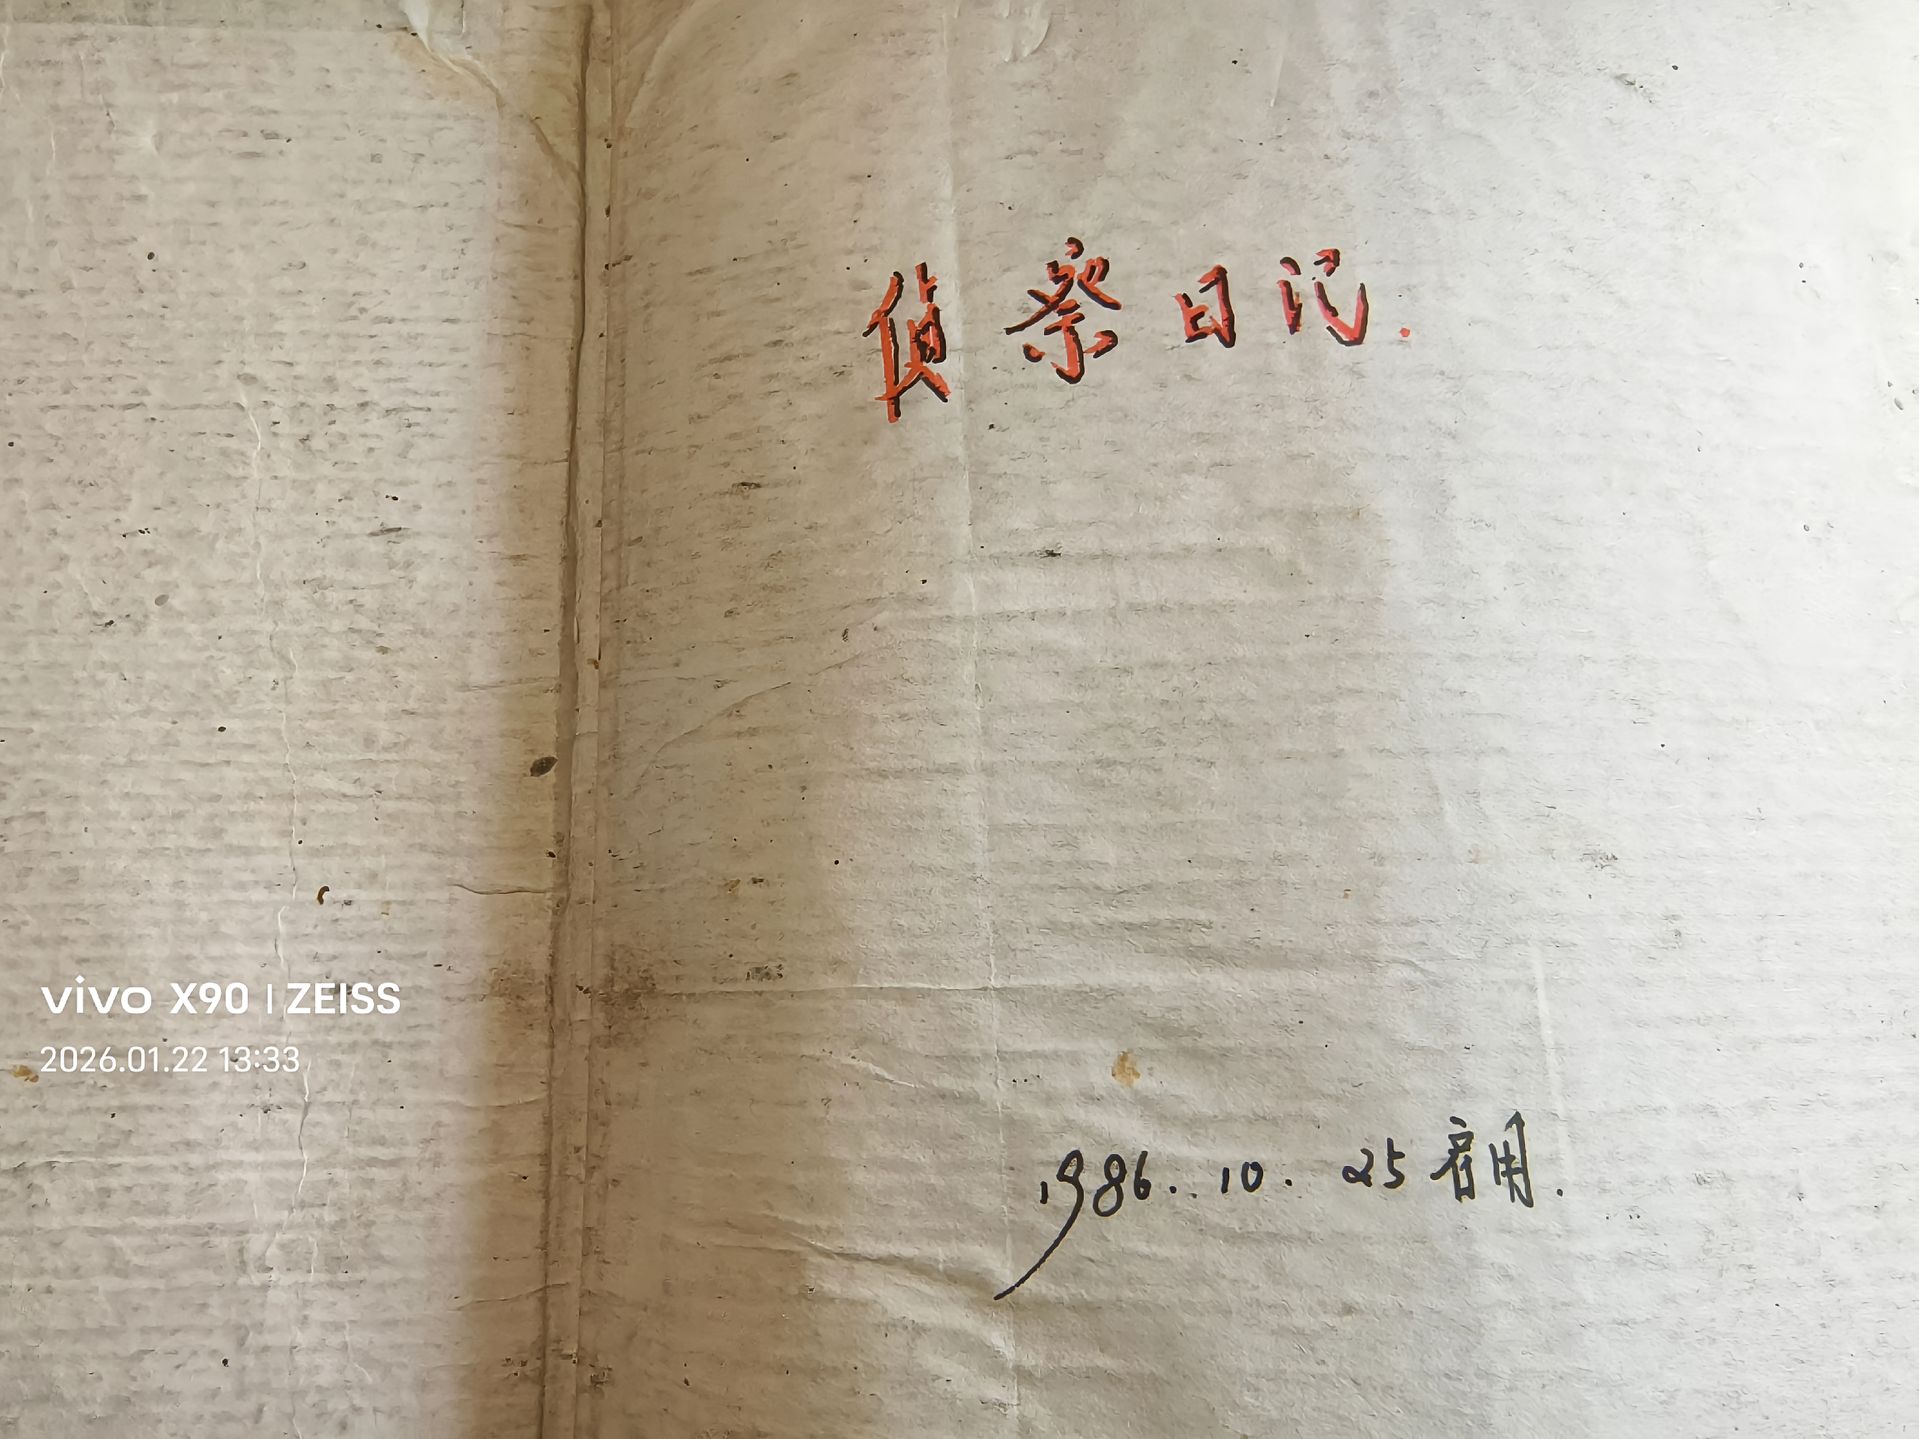 偵察日记.
vivo X90 | ZEISS
2026.01.22 13:33
1986..10. 25启用.